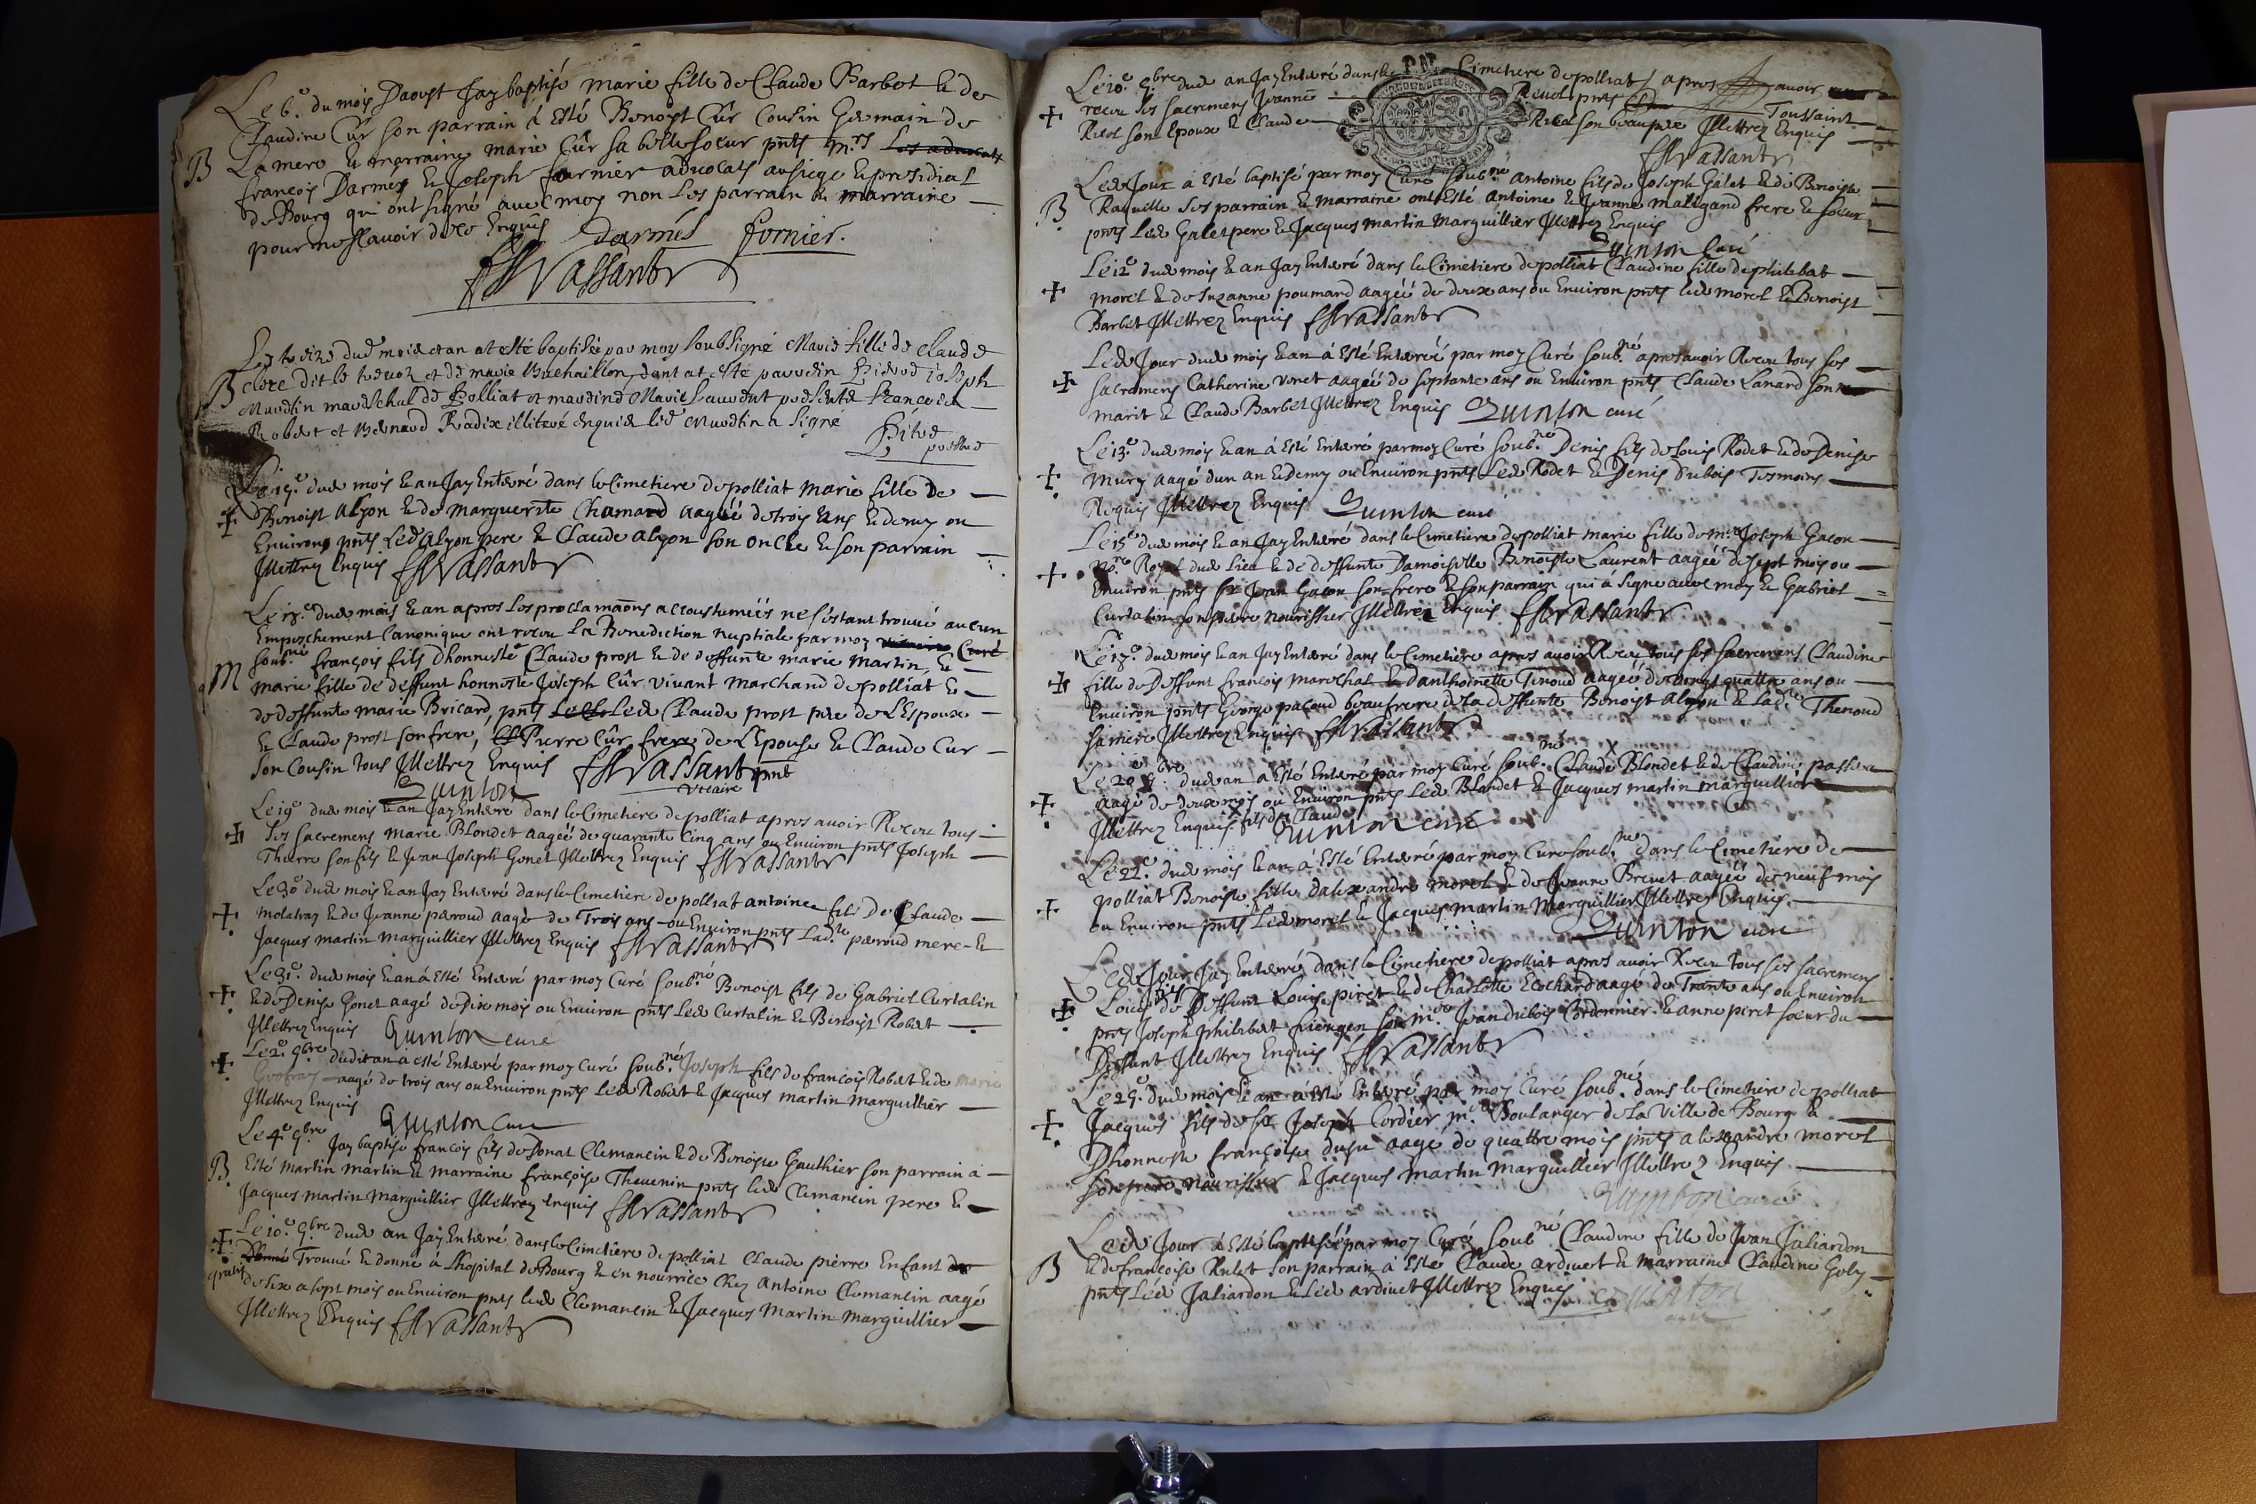 Le 6e. du mois Daoust Jay baptisé marie fille de Claude Barbet & de
Claudine Cûr son parrain á Esté Benoyt Cûr Cousin Germain de
B La mere & marraine marie Cûr sa belle soeur pnts mrs Les advocats
francois Darmes & Joseph fournier advocats au siege & presidial
de Bourg qui ont signé avec moy non Les parrain & marraine
pour ne scavoir de ce Enquis Darmés fornier.
Vassant
Le treize dud mois et an at esté baptisée par moy soubsigné Marie fille de Claude
B dit le et de marie at esté parrein Pierre Joseph
Maretin mareschal de Polliat et Marie present Francois
Robert et Bernard Radix illiteré enquis led Maretin a signé
Le 15e. dud mois & an Jay Enterré dans le Cimetiere de polliat Marie fille De
Benoist Alyon & de Marguerite Chamard aagéé de trois ans & demy ou
Environ pnts Led Alyon pere & Claude alyon son oncle & son parrain
Illettrez Enquis Vassant
Le dud mois & an apres Les proclamaons accoustumées ne s'estant trouvé aucun
Empeschement Canonique ont receu La Benediction nuptiale par moy vicaire Curé
M soub.né françois fils d'honneste Claude prost & de deffunte marie martin &
marie fille de deffunt honneste Joseph Cûr vivant marchand de polliat &
de deffunte marie Bricard, pnts Led Claude prost pere de L'Espoux
& Claude prost son frere, Pierre Cûr frere de L'Epouse & Claude Cur
son Cousin tous Illettrez Enquis Vassant pnt
Quinton vicaire
Le 19e dud mois & an Jay Enterré dans le Cimetiere de polliat apres avoir Receu tous
ses sacremens Marie Blondet aagéé de quarante Cinq ans ou Environ pnts Joseph
Therre son fils & Jean Joseph Gonet Illettrez Enquis Vassant
Le 30e dud mois & an Jay Enterré dans le Cimetiere de polliat antoine fils De Claude
molatray & de Jeanne perroud aagé de Trois ans ou Environ pnts Lad.te perroud mere &
Jacques martin marguillier Illettrez Enquis Vassant
Le 31e. dud mois & an á esté Enterré par moy Curé soub.né Benoist fils de Gabriel Curtalin
& de Denise Gonet aagé de dix mois ou Environ pnts Led Curtalin & Benoist Robert
Illettrez Enquis Quinton curé
Le 2e. 9bre dudit an a esté Enterré par moy Curé soub.né Joseph fils de francois Robert & de marie
aagé de trois ans ou Environ pnts Led Robert & Jacques martin marguillier
Illettrez Enquis Quinton Curé
Le 4e. 9bre Jay baptisé francois fils de Donat Clemancin & de Benoiste Gauthier son parrain á
B. Esté Martin martin & marraine françoise Thevenin pnts Led Clemancin pere &
Jacques martin marguillier Illettrez Enquis Vassant
Le 10e. 9bre dud an Jay Enterré dans le Cimetiere de polliat Claude pierre Enfant
Trouvé & donné á Lhopital de Bourg & en nourrice chez Antoine Clemancin aagé
gratis de six a sept mois ou Environ pnts Led Clemancin & Jacques Martin marguillier
Illettrez Enquis Vassant
Le 10e. 9bre dud an Jay Enterré dans le Cimetiere de polliat apres avoir
receu ses sacremens Jeanne Revel pnts Toussaint
son Epoux & Claude son beaupere Illettrez Enquis
Vassant
Led Jour á Esté baptisé par moy Curé soub.né antoine fils de Joseph Galet & de Benoiste
B. Raquelle ses parrain & marraine ont Esté Antoine & Jeanne maligand frere & soeur
pnts Led Galet pere & Jacques martin marguillier Illettrez Enquis
Quinton Curé
Le 12e dud mois & an Jay Enterré dans le Cimetiere de polliat Claudine fille de philibert
morel & de Suzanne poumard aagéé de deux ans ou Environ pnts Led morel & Benoist
Barbet Illettrez Enquis Vassant
Led Jour dud mois & an á Esté Enterréé par moy Curé soub.né apres avoir Receu tous ses
sacremens Catherine voret aagéé de septante ans ou Environ pnts Claude Lanard son
marit & Claude Barbet Illettrez Enquis Quinton curé
Le 13e. dud mois & an á Esté Enterré par moy Curé soub.né Denis fils de Louis Rodet & de Denise
mury aagé dun an & demy ou Environ pnts Led Rodet & Denis Dubois Tesmoins
Requis Illettrez Enquis Quinton curé
Le 15e dud mois & an Jay Enterré dans le Cimetiere de polliat marie fille de mre Joseph Gacon
Royal dud Lieu & de deffunte Damoiselle Benoiste Laurent aagéé de sept mois ou
Environ pnts Jean Gacon son frere & son parrain qui á signé avec moy & Gabriel
Curtalin son pere nourissier Illettrez Enquis Vassant
Le 17e. dud mois & an Jay Enterré dans le Cimetiere apres avoir Receu tous ses sacremens Claudine
fille de Deffunt francois Marechal & danthoinette Tenoud aagéé de vingt quattre ans ou
Environ pnts George pacoud beaufrere de la deffunte Benoist alyon & Lad.te Thenoud
sa mere Illettrez Enquis Vassant
Le 20e 9bre. dud an a Esté Enterré par moy Curé soub.né Claude Blondet & de Claudine
aagé de deux mois ou Environ pnts Led Blondet & Jacques martin marguillier
Illettrez Enquis. fils de Claude Quinton curé
Le 22e. dud mois & an á Esté Enterré par moy Curé soub.né dans le Cimetiere de
polliat Benoiste fille dalexandre morel & de Jeanne Brevet aagéé de neuf mois
ou Environ pnts Led morel & Jacques martin marguillier Illettrez Enquis.
Quinton curé
Led Jour Jay Enterré dans le Cimetiere de polliat apres avoir Receu tous ses sacremens
Louis fils de Deffunt Louis piret & de Charlotte Cochard aagé de Trente ans ou Environ
pnts Joseph philibert Jean Dubois Cordonnier & anne peret soeur du
Deffunt Illettrez Enquis Vassant
Le 29e. dud mois & an á esté Enterré par moy Curé soub.né dans le Cimetiere de polliat
Jacques fils de Joseph Cordier me Boulanger de La Ville de Bourg &
Dhonneste françoise aagé de quattre mois pnts alexandre morel
son pere nourissier & Jacques martin marguillier Illettrez Enquis
Quinton curé
Led Jour á Esté baptiséé par moy Curé soub.né Claudine fille de Jean Jaliardon
B & de francoise son parrain á Esté Claude ardinet & marraine Claudine Goly
pnts Led Jaliardon & Led ardinet Illettrez Enquis